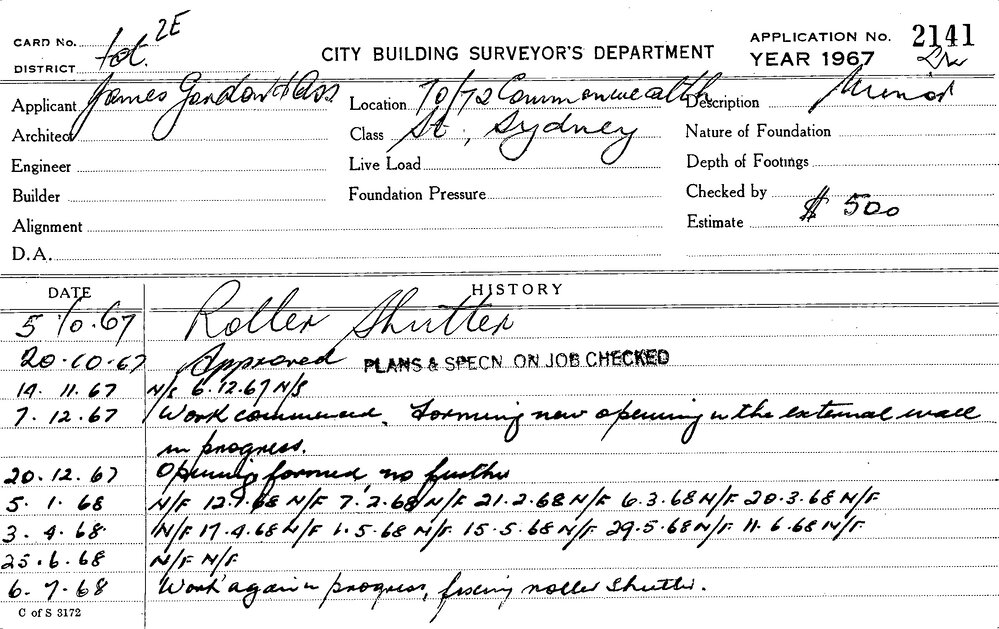 CARD No. 2E
DISTRICT tot.
CITY BUILDING SURVEYOR'S DEPARTMENT
APPLICATION No. 2141
YEAR 1967
Applicant James Gordon & Ass.
Location 70/72 Commonwealth
Description Minor
Architect
Class St, Sydney
Nature of Foundation
Engineer
Live Load
Depth of Footings
Builder
Foundation Pressure
Checked by
Alignment
Estimate $ 500
D.A.
DATE HISTORY
5 10.67 Roller Shutter
20.10.67 Approved PLANS & SPECN ON JOB CHECKED
14. 11. 67 N/S 6.12.67 N/S
7. 12. 67 Work commenced. Forming new opening in the external wall
in progress.
20. 12. 67 Opening formed, no further
5. 1. 68 N/F 12.1.68 N/F 7.2.68 N/F 21.2.68 N/F 6.3.68 N/F 20.3.68 N/F
3. 4. 68 N/F 17.4.68 N/F 1.5.68 N/F 15.5.68 N/F 29.5.68 N/F 11.6.68 N/F
25.6.68 N/F N/F
6. 7. 68 Work again in progress, fixing roller shutter.
C of S 3172